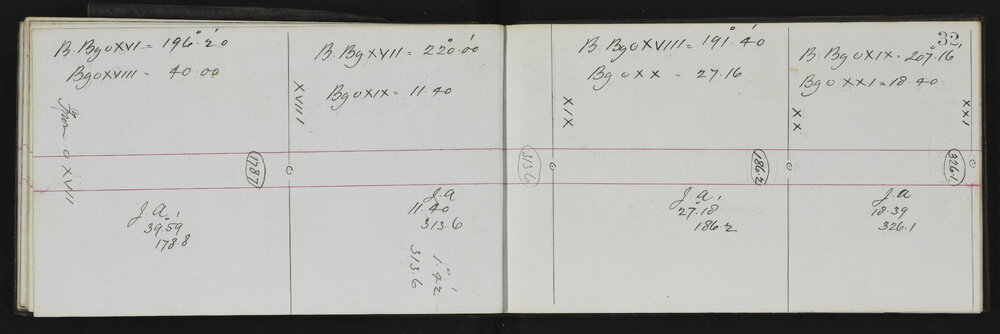 B. Bg o XVI = 196° 20'
Bg o XVIII = 40.00
From o XVII
178.7
J.A.
39°59'
178.8
B. Bg XVII = 220°.00'
Bg o XIX = 11.40
XVIII
J.a
11.40
313.6
1°.42'
313.6
B. Bg o XVIII = 191°.40'
Bg o XX = 27.16
XIX
313.6
186.2
J.A.
27°.18'
186.2
32
B. Bg o XIX = 207°.16'
Bg o XXI = 18.40
XX
XXI
326.1
J.a
18.39
326.1